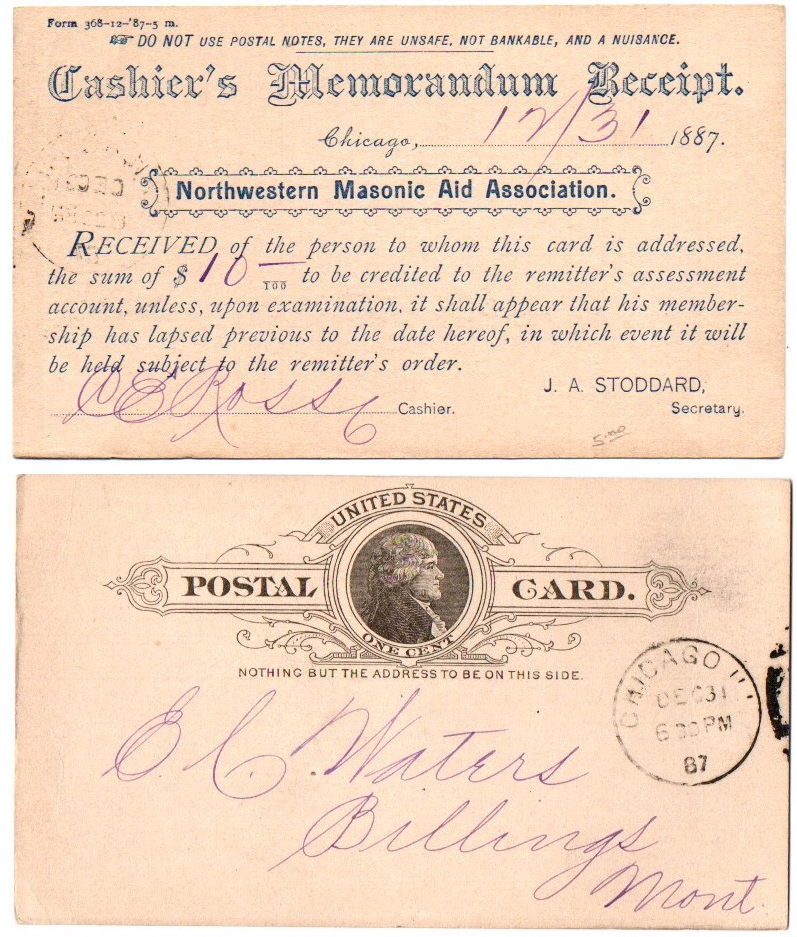 Form 368-12-'87-5 m.
☞ DO NOT USE POSTAL NOTES, THEY ARE UNSAFE, NOT BANKABLE, AND A NUISANCE.
Cashier's Memorandum Receipt.
Chicago, 12/31 1887.
Northwestern Masonic Aid Association.
RECEIVED of the person to whom this card is addressed,
the sum of $10 — 100 to be credited to the remitter's assessment
account, unless, upon examination, it shall appear that his member-
ship has lapsed previous to the date hereof, in which event it will
be held subject to the remitter's order.
J. A. STODDARD,
C E Ross Cashier. Secretary.
5.00
UNITED STATES
POSTAL CARD.
ONE CENT
NOTHING BUT THE ADDRESS TO BE ON THIS SIDE.
CHICAGO ILL
DEC 31
6 30 PM
87
E C Waters
Billings
Mont.